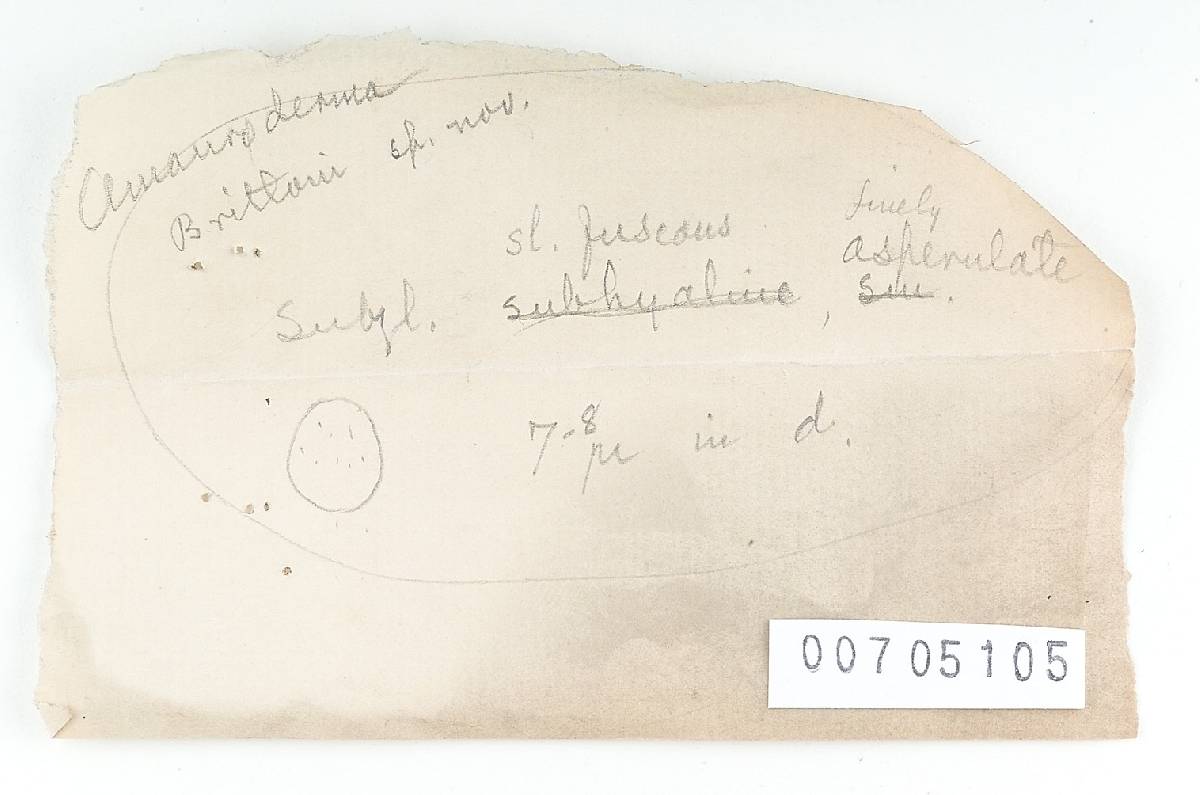 Amauroderma
Brittoni sp. nov.
sl. fuscous finely
asperulate
Subgl. subhyaline, sm.
7-8 µ in d.
00705105